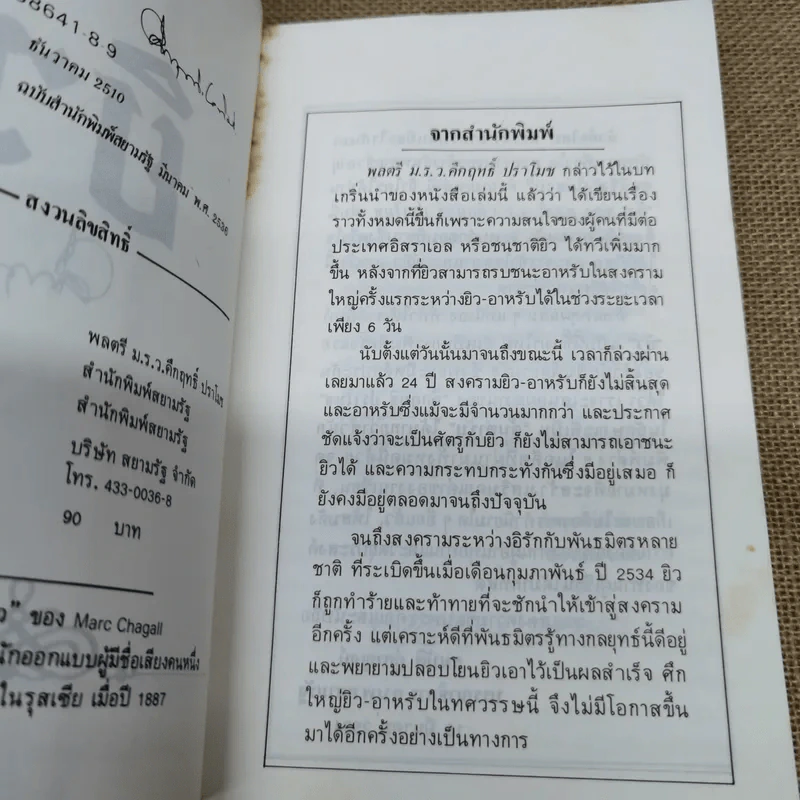 8641-8-9
ธันวาคม 2510
ฉบับสำนักพิมพ์สยามรัฐ มีนาคม พ.ศ. 2536
สงวนลิขสิทธิ์
พลตรี ม.ร.ว.คึกฤทธิ์ ปราโมช
สำนักพิมพ์สยามรัฐ
สำนักพิมพ์สยามรัฐ
บริษัท สยามรัฐ จำกัด
โทร. 433-0036-8
90 บาท
ของ Marc Chagall
นักออกแบบผู้มีชื่อเสียงคนหนึ่ง
ในรุสเซีย เมื่อปี 1887
จากสำนักพิมพ์
พลตรี ม.ร.ว.คึกฤทธิ์ ปราโมช กล่าวไว้ในบท
เกริ่นนำของหนังสือเล่มนี้ แล้วว่า ได้เขียนเรื่อง
ราวทั้งหมดนี้ขึ้นก็เพราะความสนใจของผู้คนที่มีต่อ
ประเทศอิสราเอล หรือชนชาติยิว ได้ทวีเพิ่มมาก
ขึ้น หลังจากที่ยิวสามารถรบชนะอาหรับในสงคราม
ใหญ่ครั้งแรกระหว่างยิว-อาหรับได้ในช่วงระยะเวลา
เพียง 6 วัน
นับตั้งแต่วันนั้นมาจนถึงขณะนี้ เวลาก็ล่วงผ่าน
เลยมาแล้ว 24 ปี สงครามยิว-อาหรับก็ยังไม่สิ้นสุด
และอาหรับซึ่งแม้จะมีจำนวนมากกว่า และประกาศ
ชัดแจ้งว่าจะเป็นศัตรูกับยิว ก็ยังไม่สามารถเอาชนะ
ยิวได้ และความกระทบกระทั่งกันซึ่งมีอยู่เสมอ ก็
ยังคงมีอยู่ตลอดมาจนถึงปัจจุบัน
จนถึงสงครามระหว่างอิรักกับพันธมิตรหลาย
ชาติ ที่ระเบิดขึ้นเมื่อเดือนกุมภาพันธ์ ปี 2534 ยิว
ก็ถูกทำร้ายและท้าทายที่จะชักนำให้เข้าสู่สงคราม
อีกครั้ง แต่เคราะห์ดีที่พันธมิตรรู้ทางกลยุทธ์นี้ดีอยู่
และพยายามปลอบโยนยิวเอาไว้เป็นผลสำเร็จ ศึก
ใหญ่ยิว-อาหรับในทศวรรษนี้ จึงไม่มีโอกาสขึ้น
มาได้อีกครั้งอย่างเป็นทางการ